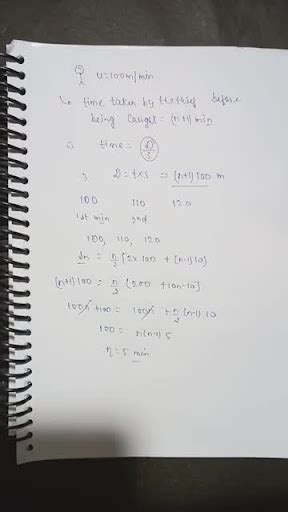 u=100m/min
↳ time taken by the thief before
being caught = (n+1) min
∴ time = D/s
∴ D = t×s ⇒ (n+1)100 m
100 110 120
1st min 2nd
100, 110, 120
Sn = n/2 [2×100 + (n-1)10]
(n+1)100 = n/2 [200 + 10n-10]
100n + 100 = 100n + n/2 (n-1) 10
100 = n(n-1) 5
n = 5 min